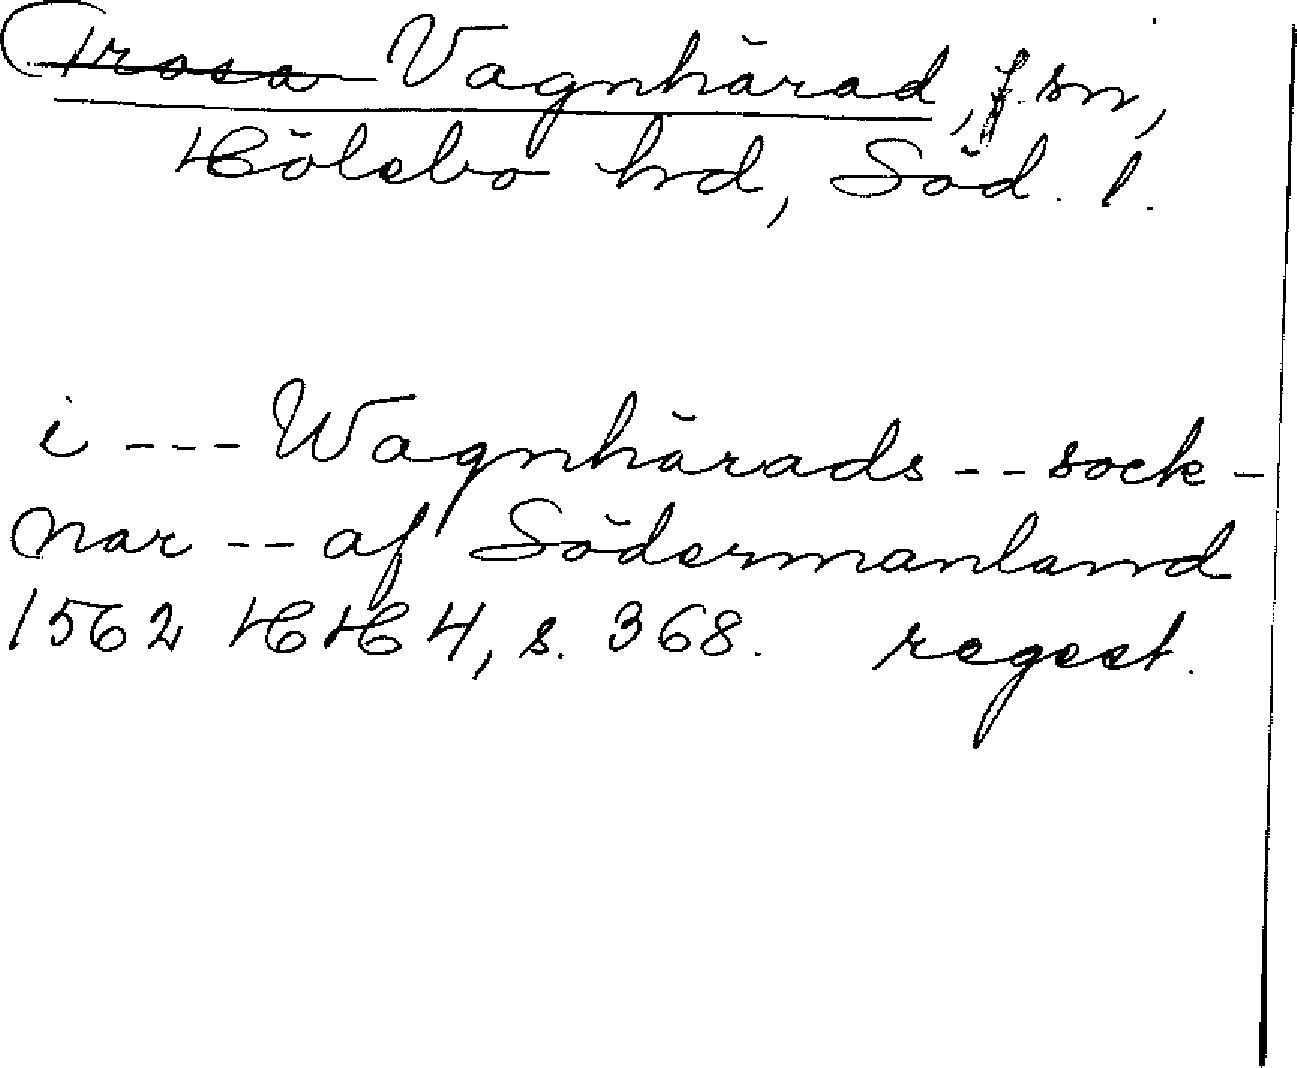 Trosa Vagnhärad, sn,
Hölebo hd, Söd. l.
i --- Wagnhärads -- sock-
nar -- af Södermanland
1562 HH 4, s. 368. regest.